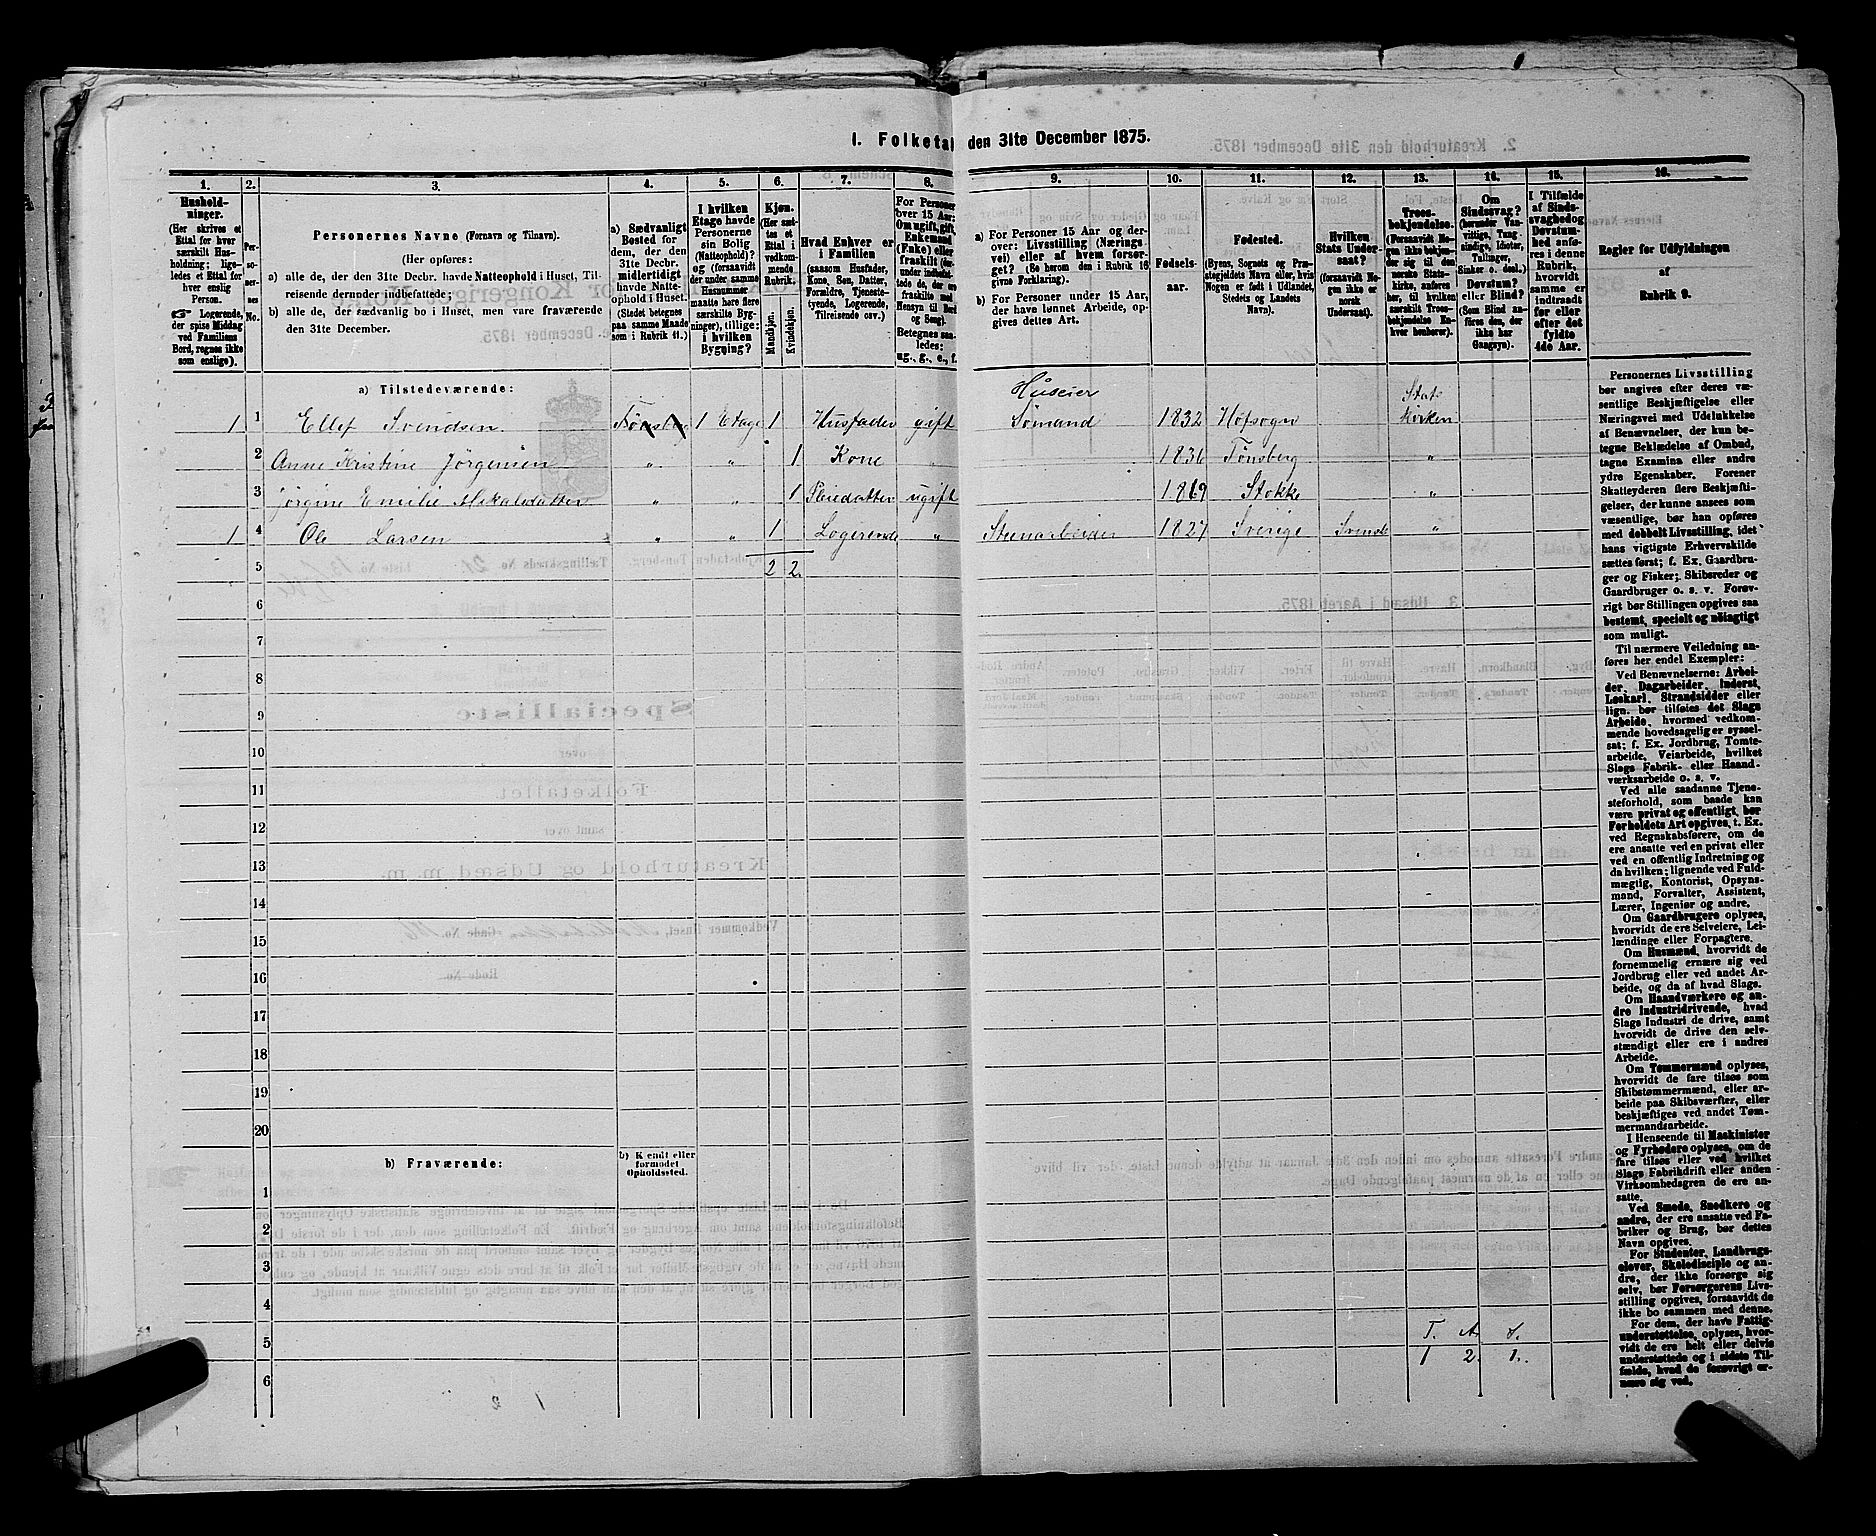 1. Folketal den 31te December 1875.
1. 2. 3. 4. 5. 6. 7. 8. 9. 10. 11. 12. 13. 14. 15. 16.
Hushold-
ninger.
(Her skrives et
Ettal for hver
særskilt Hus-
holdning; lige-
ledes et Ettal for
hver enslig
Person.
☞ Logerende,
der spise Middag
ved Familiens
Bord, regnes ikke
som enslige).
Per-
so-
ner-
nes
No.
Personernes Navne (Fornavn og Tilnavn).
(Her opføres:
a) alle de, der den 31te Decbr. havde Natteophold i Huset, Til-
reisende derunder indbefattede;
b) alle de, der sædvanlig bo i Huset, men vare fraværende
den 31te December.
a) Sædvanligt
Bosted for
dem, der den
31te Decbr.
midlertidigt
havde Natte-
ophold i Huset.
(Stedet betegnes
paa samme Maade
som i Rubrik 11.)
I hvilken
Etage havde
Personerne
sin Bolig
(Natteophold)?
og (forsaavidt
der under samme
Husnummer
maatte høre flere
særskilte Byg-
ninger), tillige:
i hvilken
Bygning?
Kjøn.
(Her sæt-
tes et
Ettal i
vedkom-
mende
Rubrik.)
Mandkjøn.
Kvindekjøn.
Hvad Enhver er
i Familien
(saasom Husfader,
Kone, Søn, Datter,
Forældre, Tjeneste-
tyende, Logerende,
Tilreisende osv.)
For Personer
over 15 Aar:
Om ugift, gift,
Enkemand
(Enke) eller
fraskilt
Betegnes saa-
ledes:
ug., g., e., f.
a) For Personer 15 Aar og der-
over: Livsstilling (Nærings-
vei) eller af hvem forsør-
get? (Se herom den i Rubrik 16
givne Forklaring).
b) For Personer under 15 Aar,
der have lønnet Arbeide, op-
gives dettes Art.
Fødsels-
aar.
Fødested.
(Byens, Sognets og Præ-
stegjeldets Navn eller, hvis
Nogen er født i Udlandet,
Stedets og Landets
Navn).
Hvilken
Stats Under-
saat?
(forsaavidt No-
gen ikke er
norsk
Undersaat).
Troes-
bekjendelse.
(Forsaavidt No-
gen ikke bekjen-
der sig til den
norske Stats-
kirke, anføres
her, til hvilken
særskilt Troes-
bekjendelse En-
hver henhører).
Om
Sindssvag?
(herunder Van-
vittige, Tung-
sindige, Idioter,
Tullinger,
Sinker o. desl.)
Døvstum?
eller Blind?
(Som Blind an-
føres den, der
ikke har
Gangsyn).
I Tilfælde
af Sinds-
svaghed og
Døvstum-
hed anfø-
res i denne
Rubrik,
hvorvidt
samme er
indtraadt
før eller
efter det
fyldte
4de Aar.
Regler for Udfyldningen
af
Rubrik 9.
a) Tilstedeværende:
1 1 Ellef Svendsen Tønsberg 1 Etage 1 Husfader gift Huseier Sømand 1832 Hofsogn Stats Kirken
2 Anne Kristine Jörgensen " " 1 Kone " 1836 Tønsberg "
3 Jörgine Emilie Mikalsdatter " " 1 Pleiedatter ugift 1869 Stokke "
1 4 Ole Larsen " " 1 Logerende " Steenarbeider 1827 Sverige Svensk "
5 2 2.
6
7
8
9
10
11
12
13
14
15
16
17
18
19
20
b) Fraværende:
b) Kjendt eller
formodet
Opholdssted.
1
2
3
4
5
6
T. A. S.
1 2. 1.
Personernes Livsstilling
bør angives efter deres væ-
sentlige Beskjæftigelse eller
Næringsvei med Udelukkelse
af Benævnelser, der kun be-
tegne Beklædelse af Ombud,
tagne Examina eller andre
ydre Egenskaber. Forener
Skatteyderen flere Beskjæfti-
gelser, der kunne ansees som
væsentlige, bør han opføres
med dobbelt Livsstilling, idet
hans vigtigste Erhvervskilde
sættes først; f. Ex. Gaardbru-
ger og Fisker; Skibsreder og
Gaardbruger o. s. v. Forøv-
rigt bør Stillingen opgives saa
bestemt, specielt og nøiagtigt
som muligt.
Til nærmere Veiledning an-
føres her endel Exempler:
Ved Benævnelserne: Arbei-
der, Dagarbeider, Inderst,
Løskarl, Strandsidder eller
lign. bør tilføies det Slags
Arbeide, hvormed vedkom-
mende hovedsagelig er syssel-
sat: f. Ex. Jordbrug, Tomte-
arbeide, Veiarbeide, hvilket
Slags Fabrik- eller Haand-
værksarbeide o. s. v.
Ved alle saadanne Tjene-
steforhold, som baade kan
være privat og offentligt, bør
Forholdets Art opgives, t. Ex.
ved Regnskabsførere, om de
ere ansatte ved en privat eller
ved en offentlig Indretning og
da hvilken; lignende ved Fuld-
mægtig, Kontorist, Opsyns-
mand, Forvalter, Assistent,
Lærer, Ingeniør og andre.
Om Gaardbrugere oplyses,
hvorvidt de ere Selveiere, Lei-
lændinge eller Forpagtere.
Om Husmænd, hvorvidt de
fornemmelig ernære sig ved
Jordbrug eller ved andet Ar-
beide, og da af hvad Slags.
Om Haandværkere og an-
dre Industridrivende, hvad
Slags Industri de drive, samt
hvorvidt de drive den selv-
stændigt eller ere i andres
Arbeide.
Om Tømmermænd oplyses,
hvorvidt de fare tilsøs som
Skibstømmermænd, eller ar-
beide paa Skibsværfter, eller
beskjæftiges ved andet Tøm-
mermandsarbeide.
I Henseende til Maskinister
og Fyrbødere oplyses, om de
fare tilsøs eller ved hvilket
Slags Fabrikdrift eller anden
Virksomhedsgren de ere an-
satte.
Ved Smede, Snedkere og
andre, der ere ansatte ved Fa-
briker og Brug, bør dettes
Navn opgives.
For Studenter, Landbrugs-
elever, Skoledisciple og an-
dre, der ikke forsørge sig
selv, bør Forsørgerens Livs-
stilling opgives, forsaavidt de
ikke bo sammen med denne.
For dem, der have Fattig-
understøttelse, oplyses, hvor-
vidt de ere helt eller delvis
understøttede og i sidste Til-
fælde, hvad de forøvrigt er-
nære sig ved.